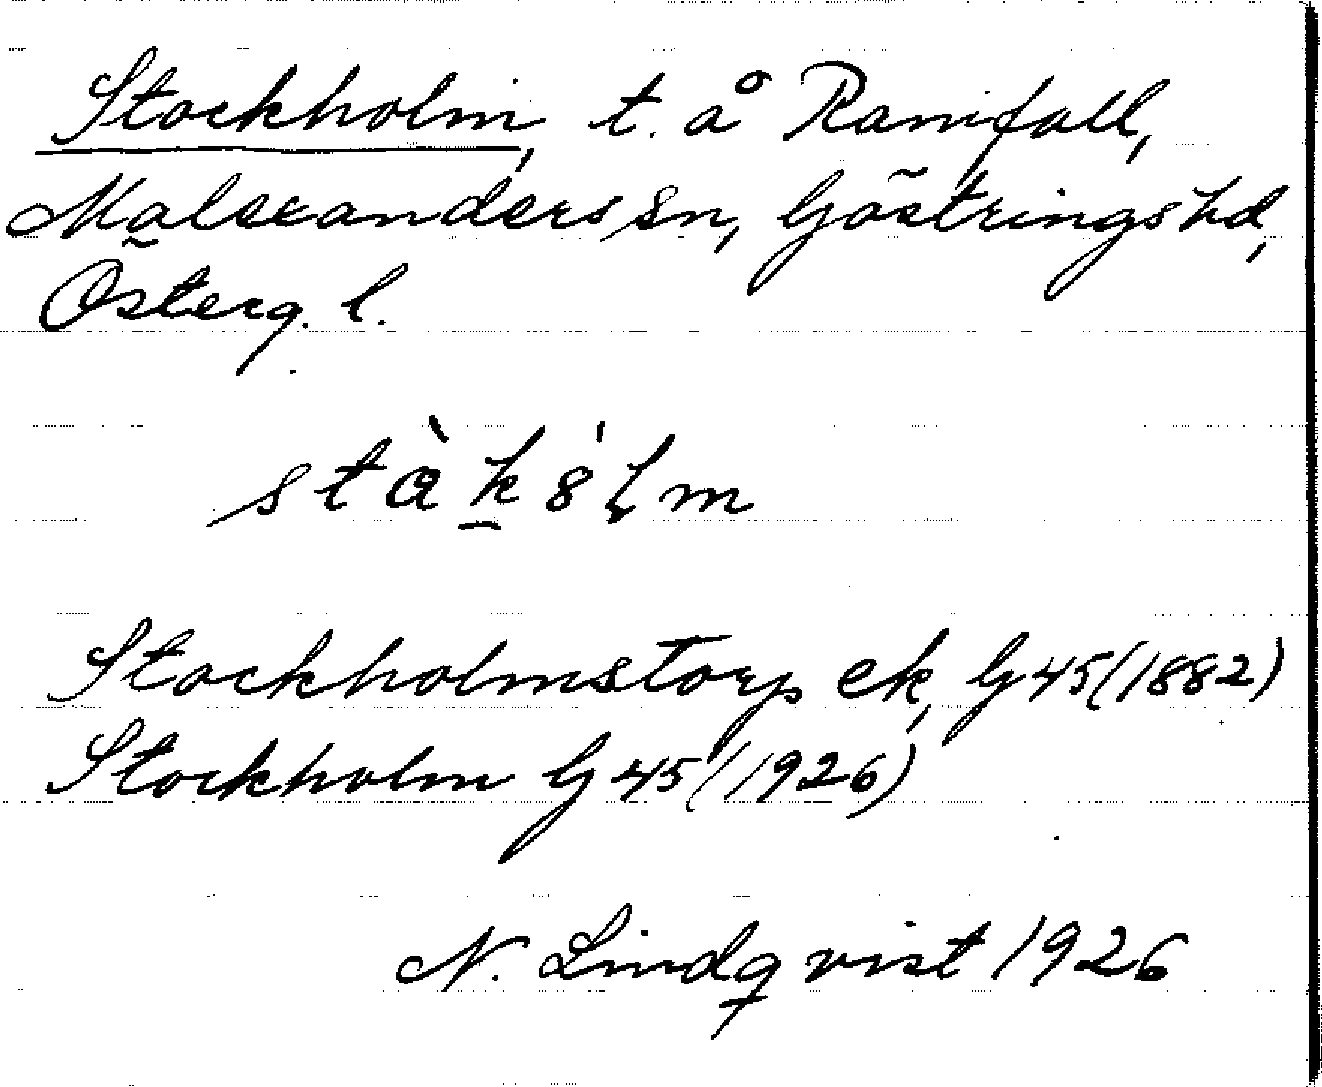 Stockholm, t. å Ramfall,
Malexanders sn, Göstrings hd,
Österg. l.
stàk8̍lm
Stockholmstorp ek, G 45 (1882)
Stockholm G 45 (1926)
N. Lindqvist 1926